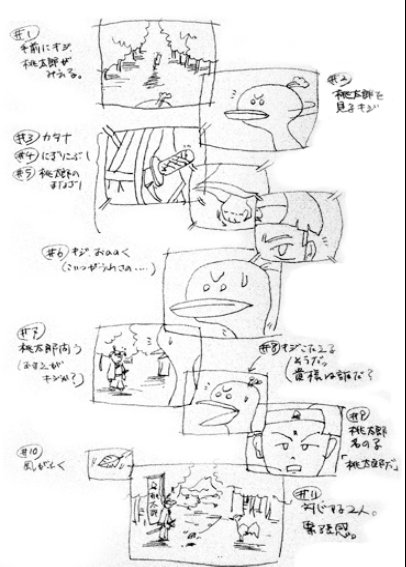 #1
手前にキジ
桃太郎が
みえる。
#2
桃太郎を
見るキジ
#3 カタナ
#4 にぎりこぶし
#5 桃太郎の
まなざし
#6 キジ おののく
(こいつがうわさの....)
#7
桃太郎問う
(おまえが
キジか?)
#8 キジこたえる
そうだっ
貴様は誰だ?
#9
桃太郎
名のる
「桃太郎だ」
#10
風がふく
#11
対じする2人。
緊張感。